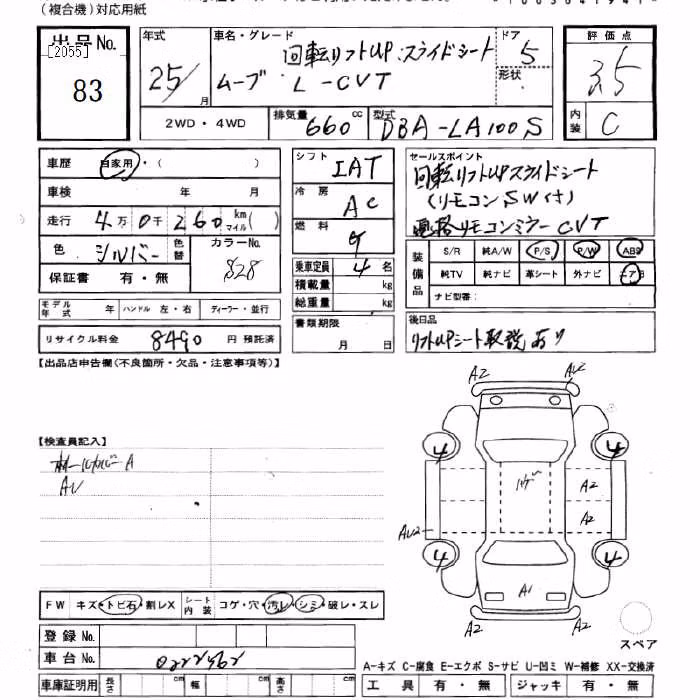 (複合機)対応用紙
出品No.
[2055]
83
年式
25/
月
車名・グレード
回転リフトUP.スライドシート
ムーブ L-CVT
ドア
5
形状
評価点
3.5
内装
C
2WD・4WD
排気量
660 cc
型式
DBA-LA100S
車歴 自家用・( )
車検 年 月
走行 4万0千260 km マイル( )
色 シルバー 色替 カラーNo. S28
保証書 有・無
モデル年式 年 ハンドル 左・右 ディーラー・並行
リサイクル料金 8490 円 預託済
シフト IAT
冷房 AC
燃料 G
乗車定員 4 名
積載量 kg
総重量 kg
書類期限
月 日
セールスポイント
回転リフトUPスライドシート
(リモコンSW付)
電格リモコンミラー CVT
装備品
S/R 純A/W P/S P/W ABS
純TV 純ナビ 革シート 外ナビ エアB
ナビ型番:
後日品
リフトUPシート取説あり
【出品店申告欄(不良箇所・欠品・注意事項等)】
【検査員記入】
AU
A2 AU2
4 4
A2
A2
AU2
4 4
A1
A2 A2
スペア
FW キズ・トビ石・割レX シート内装 コゲ・穴・汚レ・シミ・破レ・スレ
登録No.
車台No. 0222562
車庫証明用 長さ cm 幅 cm 高さ cm
A-キズ C-腐食 E-エクボ S-サビ U-凹ミ W-補修 XX-交換済
工具 有・無 ジャッキ 有・無